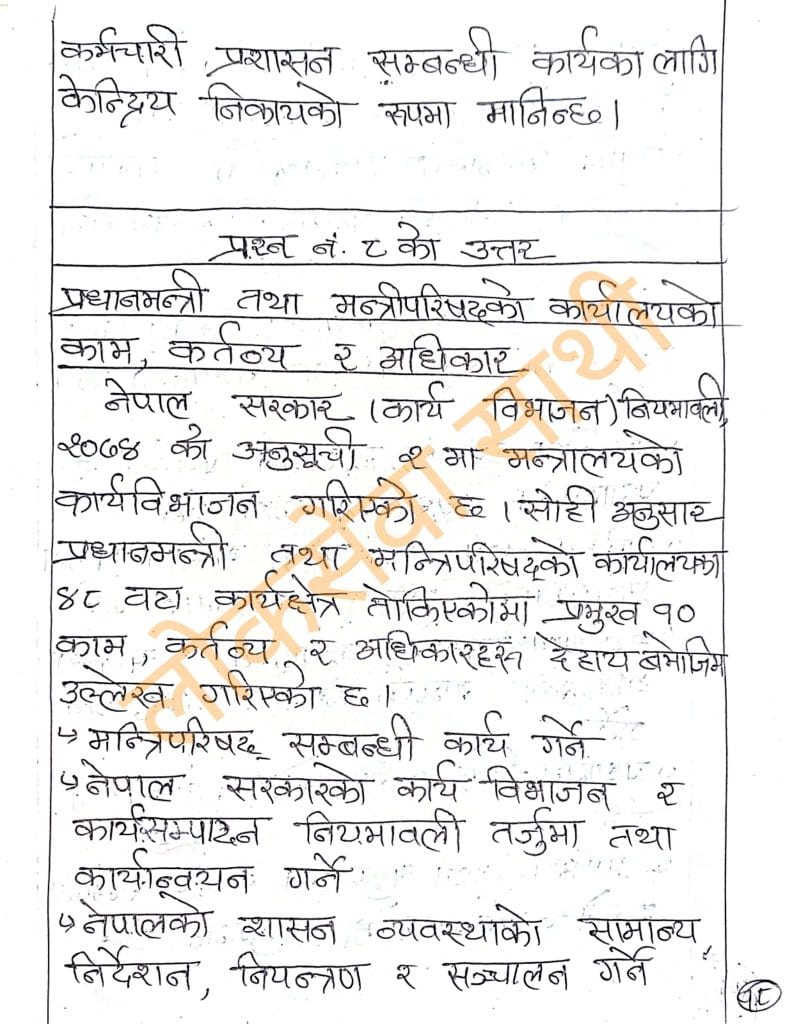 कर्मचारी प्रशासन सम्बन्धी कार्यका लागि
केन्द्रिय निकायको रुपमा मानिन्छ।
प्रश्न नं. ८ को उत्तर
प्रधानमन्त्री तथा मन्त्रीपरिषद्को कार्यालयको
काम, कर्तव्य र अधिकार
नेपाल सरकार (कार्य विभाजन) नियमावली,
२०७४ को अनुसूची २ मा मन्त्रालयको
कार्यविभाजन गरिएको छ। सोही अनुसार
प्रधानमन्त्री तथा मन्त्रिपरिषद्को कार्यालयका
४८ वटा कार्यक्षेत्र तोकिएकोमा प्रमुख १०
काम, कर्तव्य र अधिकारहरु देहाय बमोजिम
उल्लेख गरिएको छ।
↳ मन्त्रिपरिषद् सम्बन्धी कार्य गर्ने
↳ नेपाल सरकारको कार्य विभाजन र
कार्यसम्पादन नियमावली तर्जुमा तथा
कार्यान्वयन गर्ने
↳ नेपालको शासन व्यवस्थाको सामान्य
निर्देशन, नियन्त्रण र सञ्चालन गर्ने
लोकसेवा साथी